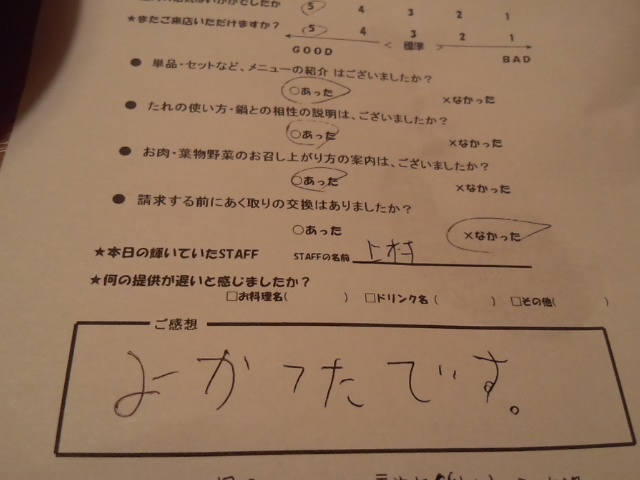 ⑤ 4 3 2 1
★またご来店いただけますか? ⑤ 4 3 2 1
GOOD < 標準 > BAD
● 単品・セットなど、メニューの紹介 はございましたか?
○あった ×なかった
● たれの使い方・鍋との相性の説明は、ございましたか?
○あった ×なかった
● お肉・葉物野菜のお召し上がり方の案内は、ございましたか?
○あった ×なかった
● 請求する前にあく取りの交換はありましたか?
○あった ×なかった
★本日の輝いていたSTAFF STAFFの名前 上村
★何の提供が遅いと感じましたか?
□お料理名( ) □ドリンク名( ) □その他( )
ご感想
よかったです。